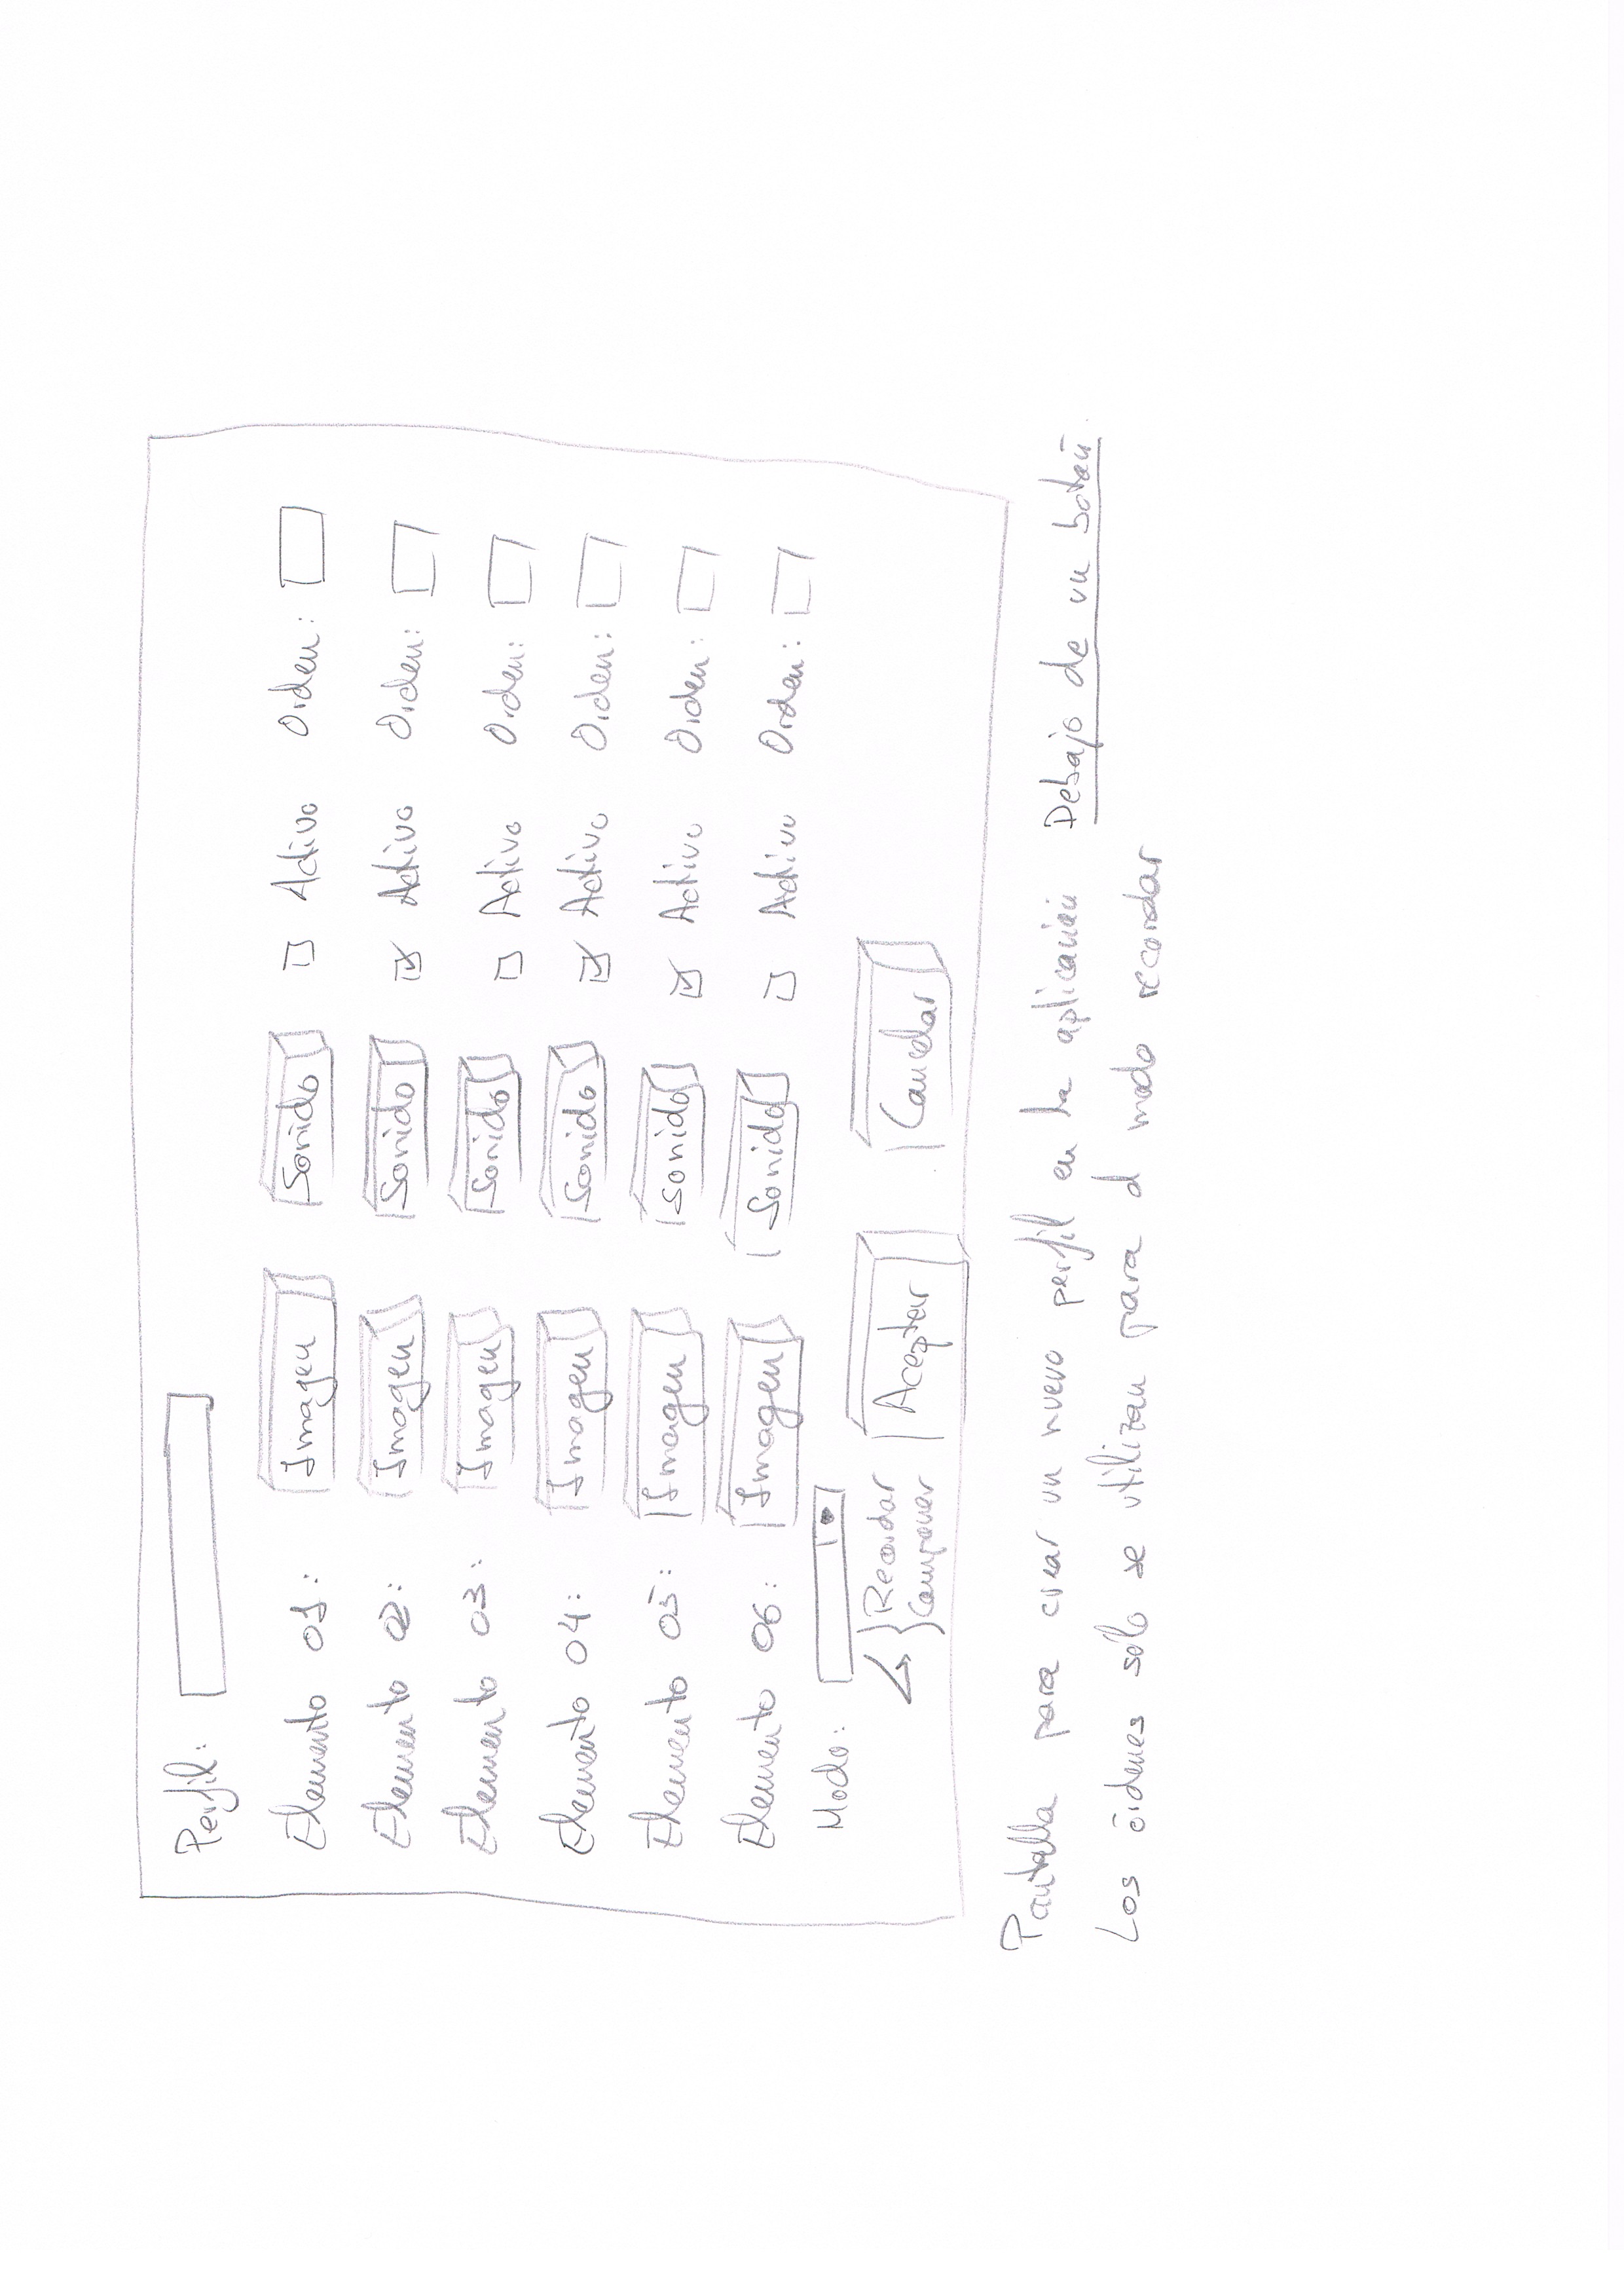 Perfil:
Elemento 01: Imagen Sonido Activo Orden:
Elemento 02: Imagen Sonido Activo Orden:
Elemento 03: Imagen Sonido Activo Orden:
Elemento 04: Imagen Sonido Activo Orden:
Elemento 05: Imagen Sonido Activo Orden:
Elemento 06: Imagen Sonido Activo Orden:
Modo:
Recordar Aceptar Cancelar
Componer
Pantalla para crear un nuevo perfil en la aplicación Debajo de un botón.
Los órdenes sólo se utilizan para el modo recordar